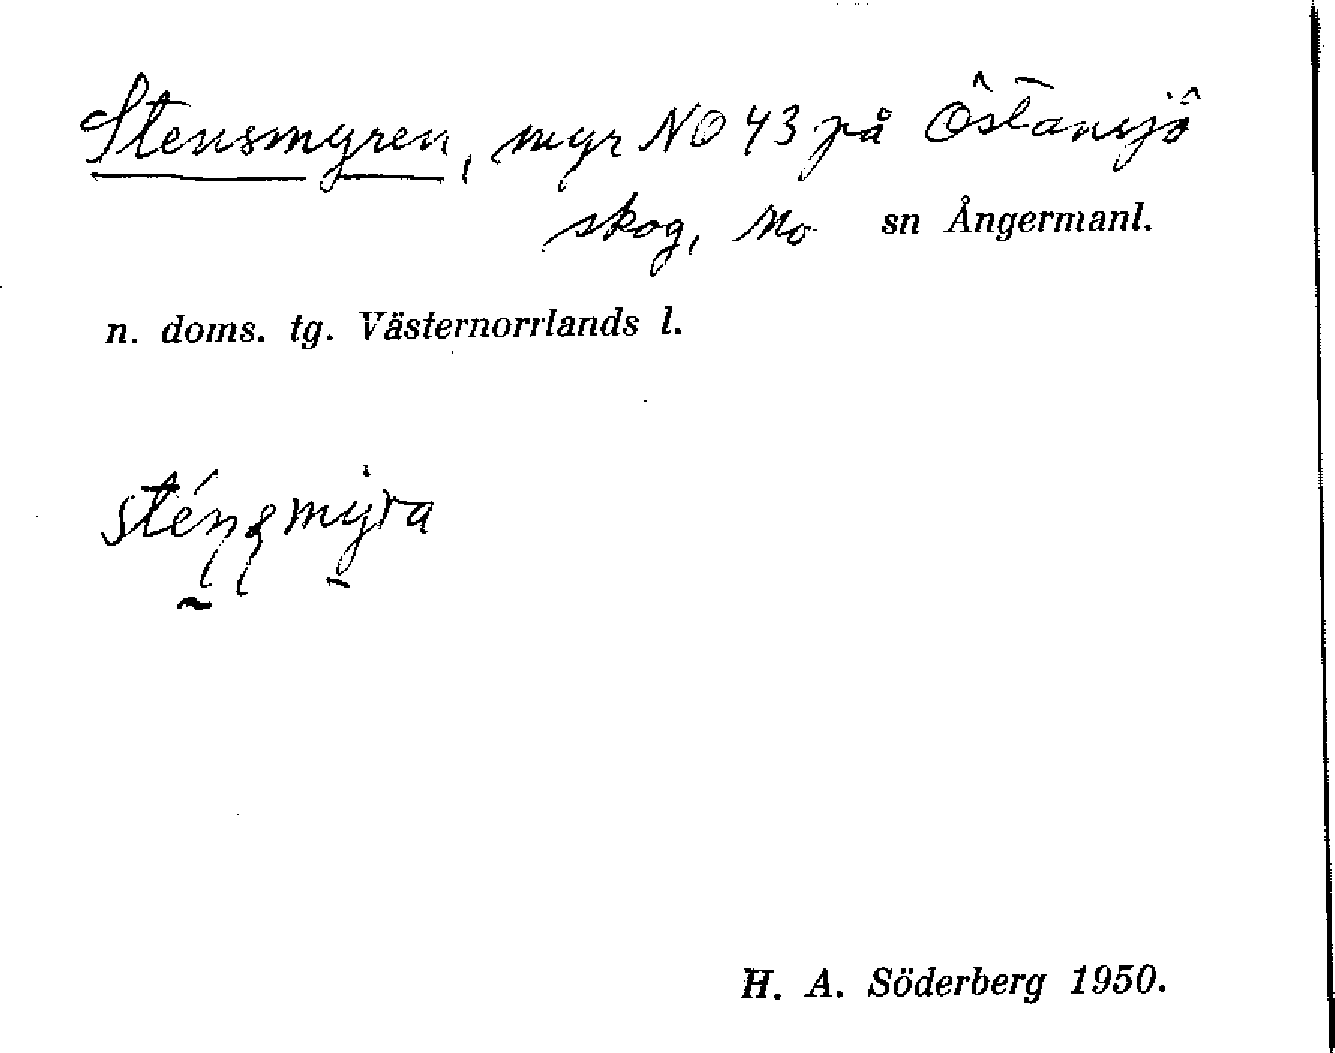 Stensmyren, myr NO 43 på Östansjö
skog, Mo sn Ångermanl.
n. doms. tg. Västernorrlands l.
H. A. Söderberg 1950.